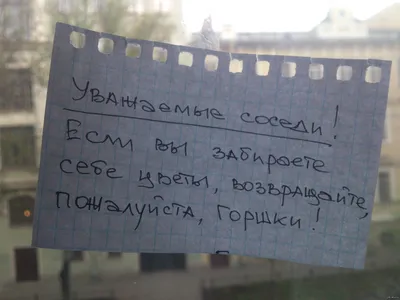 Уважаемые соседи!
Если вы забираете
себе цветы, возвращайте,
пожалуйста, горшки!